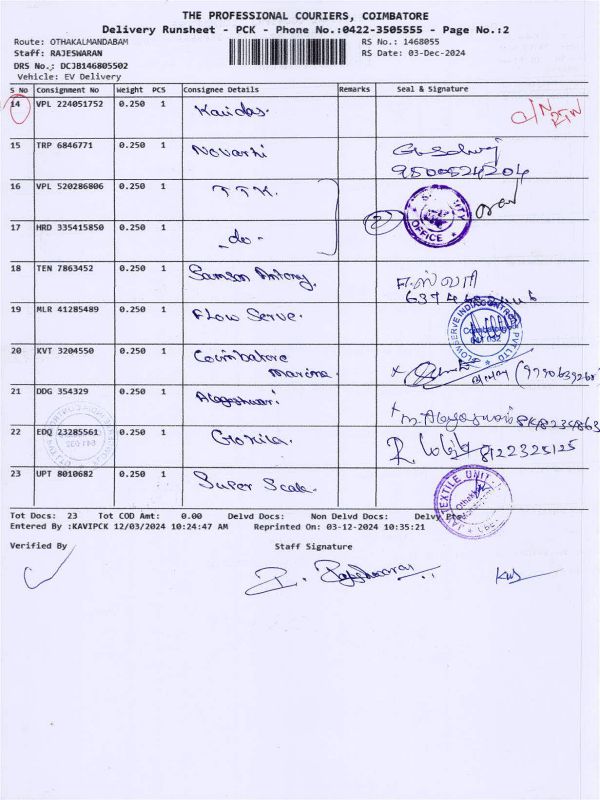 THE PROFESSIONAL COURIERS, COIMBATORE
Delivery Runsheet - PCK - Phone No.:0422-3505555 - Page No.:2
Route: OTHAKALMANDABAM RS No.: 1468055
Staff: RAJESWARAN RS Date: 03-Dec-2024
DRS No.: DCJB146805502
Vehicle: EV Delivery
S No Consignment No Weight PCS Consignee Details Remarks Seal & Signature
14 VPL 224051752 0.250 1 Kavidas.
15 TRP 6846771 0.250 1 Novarhi
9500524204
16 VPL 520286806 0.250 1 T T K. SECURITY OFFICE
17 HRD 335415850 0.250 1 - do - 2
18 TEN 7863452 0.250 1 Samson Antony.
19 MLR 41285489 0.250 1 Flow Serve. Coimbatore 641 032
20 KVT 3204550 0.250 1 Coimbatore Marina.
21 DDG 354329 0.250 1 Alageshwari
22 EDQ 23285561 0.250 1 Gokila. 8122325125
23 UPT 8010682 0.250 1 Super Scale. TEXTILE UNIT
Tot Docs: 23 Tot COD Amt: 0.00 Delvd Docs: Non Delvd Docs: Delvy Pte
Entered By :KAVIPCK 12/03/2024 10:24:47 AM Reprinted On: 03-12-2024 10:35:21
Verified By Staff Signature